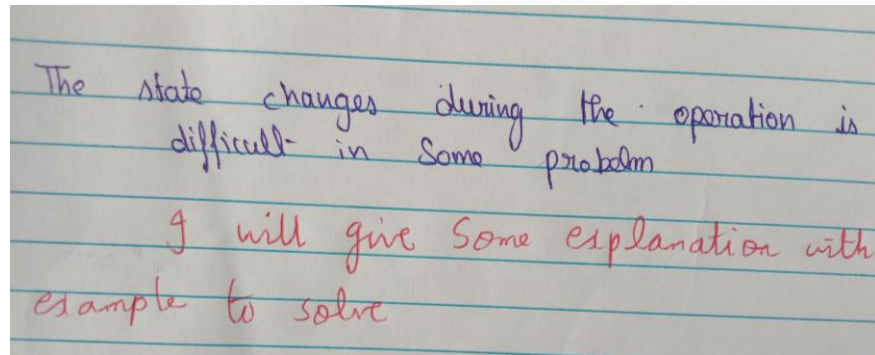 The state changes during the operation is
difficult in Some probelm
I will give Some explanation with
example to solve